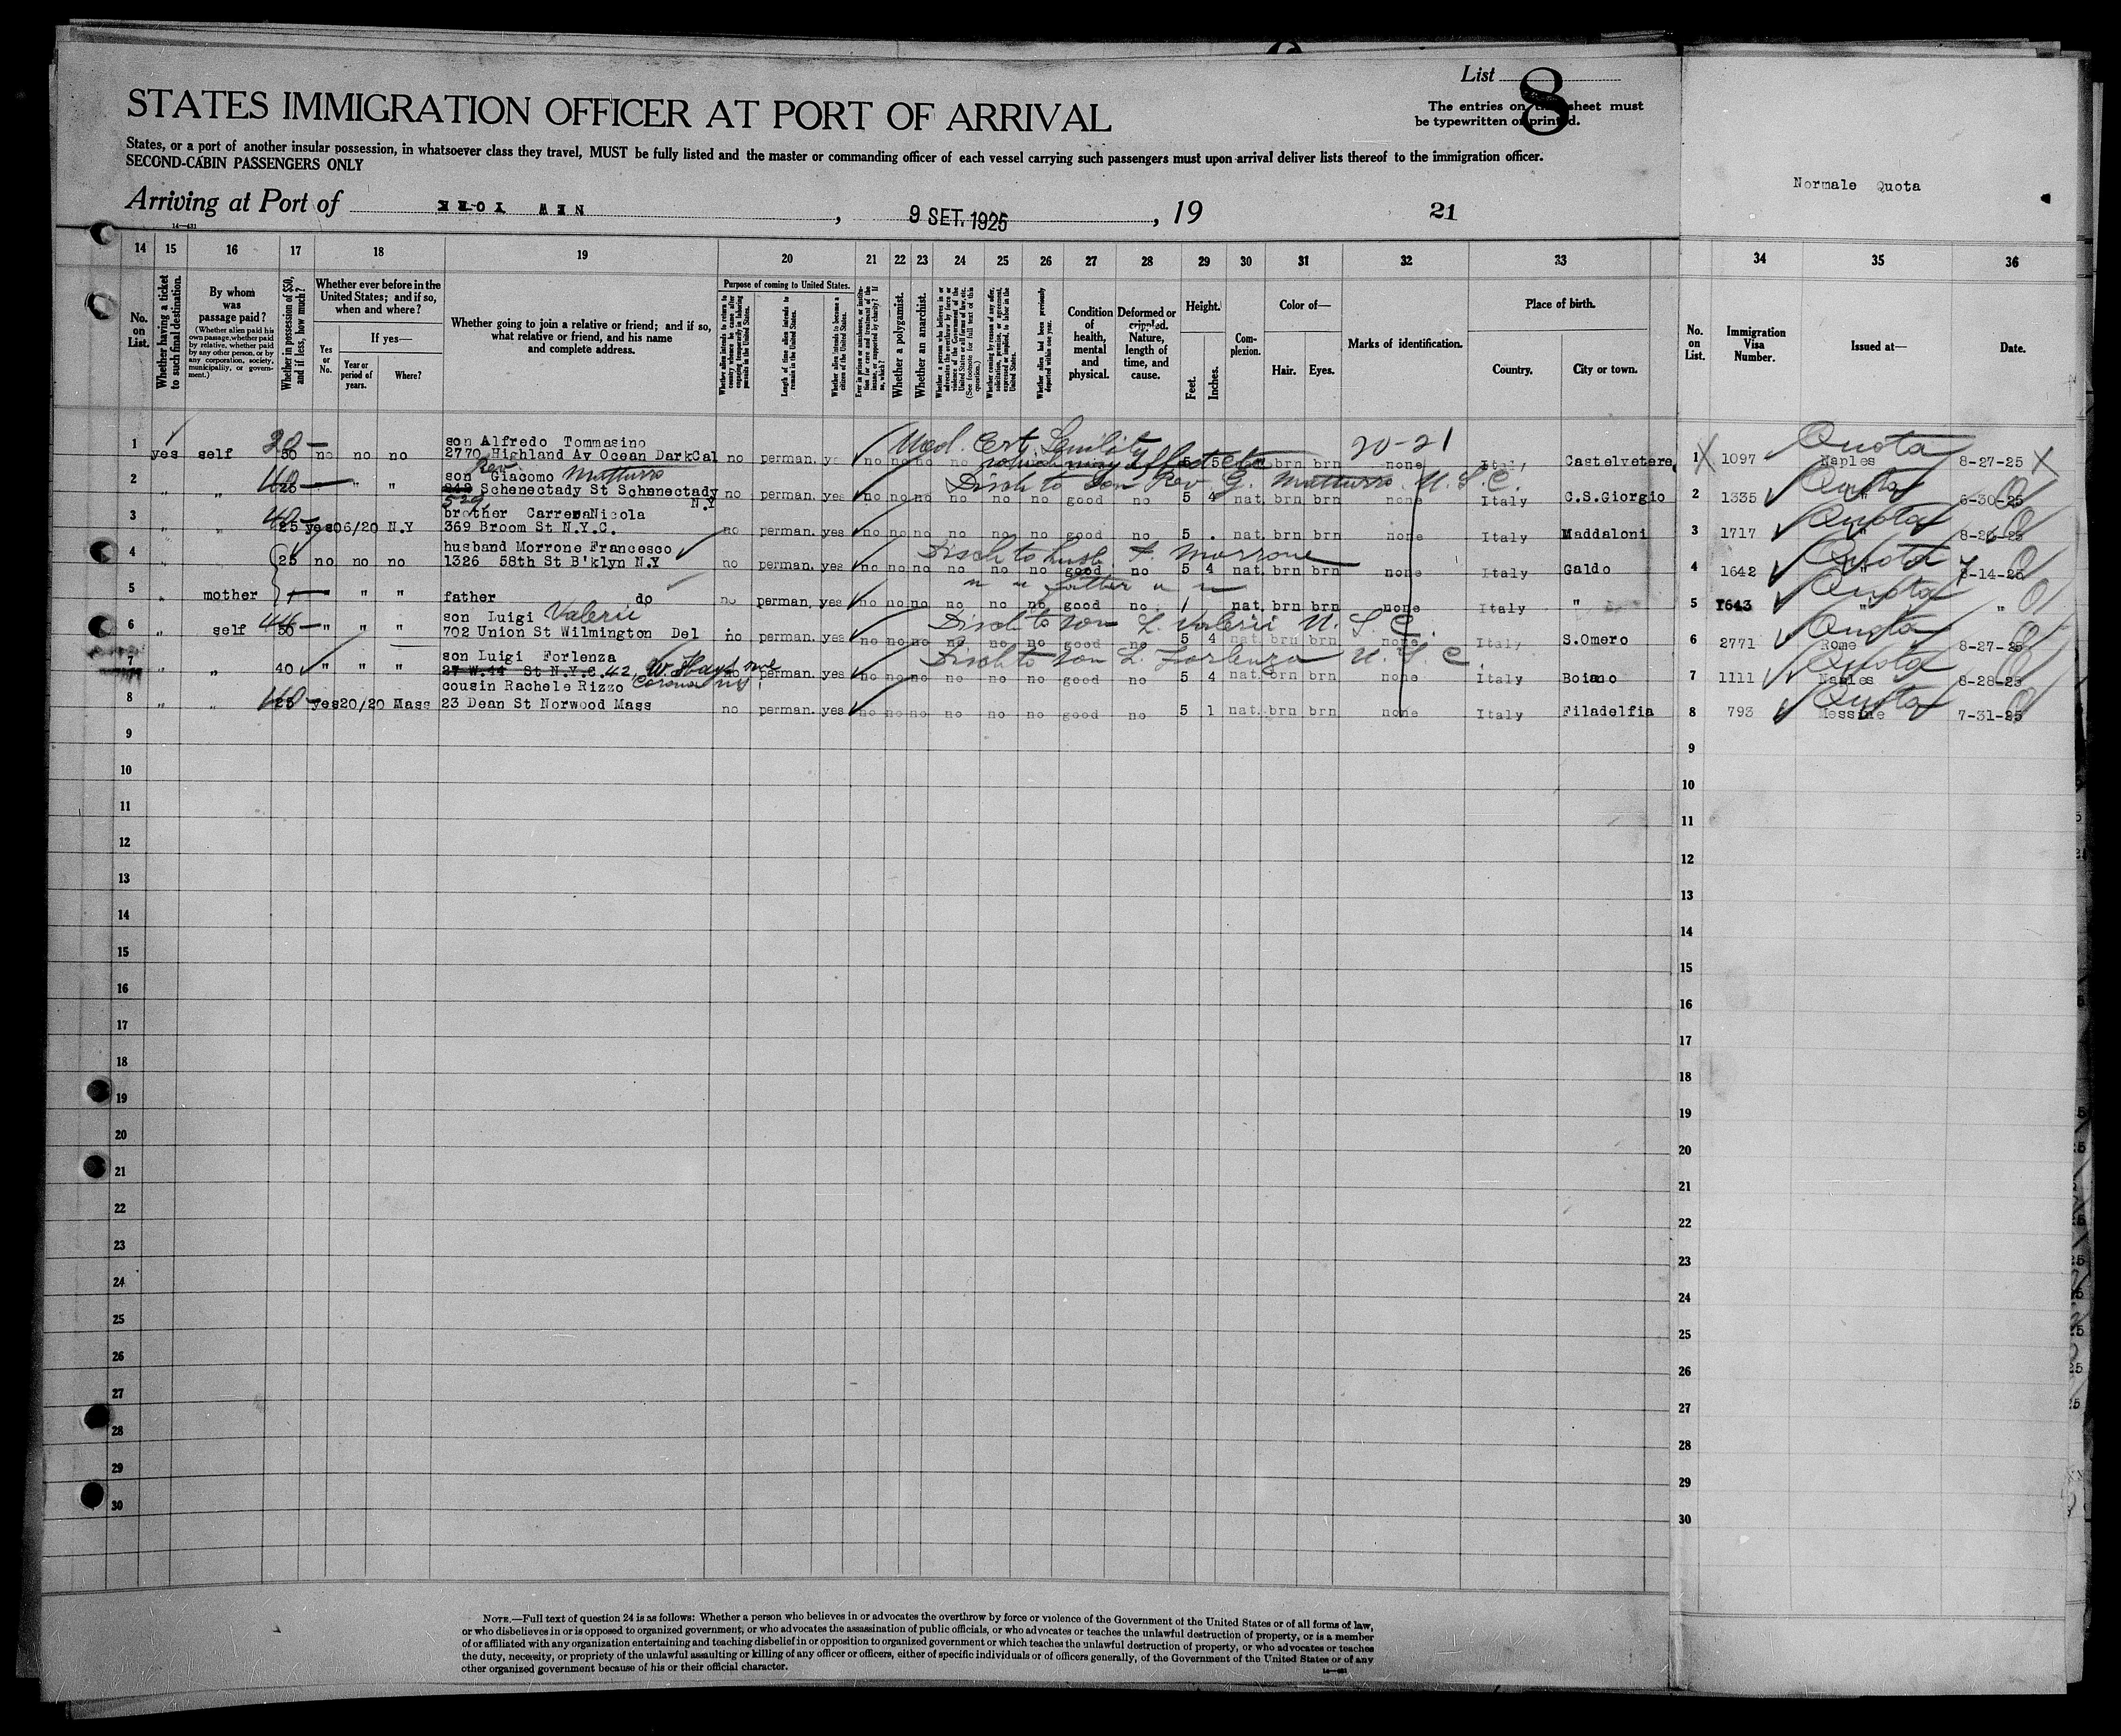 List 8
STATES IMMIGRATION OFFICER AT PORT OF ARRIVAL
The entries on this sheet must
be typewritten or printed.
States, or a port of another insular possession, in whatsoever class they travel, MUST be fully listed and the master or commanding officer of each vessel carrying such passengers must upon arrival deliver lists thereof to the immigration officer.
SECOND-CABIN PASSENGERS ONLY
Normale Quota
Arriving at Port of NEW YORK, 9 SET. 1925, 19 21
14 15 16 17 18 19 20 21 22 23 24 25 26 27 28 29 30 31 32 33 34 35 36
No. on List.
Whether having a ticket to such final destination.
By whom was passage paid?
(Whether alien paid his own passage, whether paid by relative, whether paid by any other person, or by any corporation, society, municipality, or government.)
Whether in possession of $50, and if less, how much?
Whether ever before in the United States; and if so, when and where?
If yes—
Yes or No.
Year or period of years.
Where?
Whether going to join a relative or friend; and if so, what relative or friend, and his name and complete address.
Purpose of coming to United States.
Length of time alien intends to remain in the United States.
Whether alien intends to become a citizen of the United States.
Whether a polygamist.
Whether an anarchist.
Whether alien had been previously deported within one year.
Condition of health, mental and physical.
Deformed or crippled. Nature, length of time, and cause.
Height.
Feet.
Inches.
Complexion.
Color of—
Hair.
Eyes.
Marks of identification.
Place of birth.
Country.
City or town.
No. on List.
Immigration Visa Number.
Issued at—
Date.
Med. Cert. Senility 20-21
which may affect
1 yes self 20— 50 no no no son Alfredo Tommasino
2770 Highland Av Ocean DarkCal no perman. yes no no no no 5 5 brn brn none Italy Castelvetere 1 X 1097 Quota Naples 8-27-25 X
Disch to son Rev. G. Matturro U.S.C.
2 " " 40— 25 " " son Rev Giacomo Matturro
848 529 Schenectady St Schenectady N.Y no perman. yes no no no no no no good no 5 4 nat brn brn none Italy C.S.Giorgio 2 1335 Quota " 6-30-25
3 " " 40— 25 yes 06/20 N.Y brother CarreraNicola
369 Broom St N.Y.C. no perman. yes no no no no no no good no 5 . nat. brn brn none Italy Maddaloni 3 1717 Quota " 8-26-25
Disch to husb. F. Morrone
4 " 25 no no no husband Morrone Francesco
1326 58th St B'klyn N.Y no perman. yes no no no no no no good no 5 4 nat. brn brn none Italy Galdo 4 1642 Quota " 7-14-25
" " father " "
5 " mother — " " father do no perman. yes no no no no no no good no / nat. brn brn none Italy " 5 1643 Quota " "
Disch to son L. Valerii U.S.C.
6 " self 44— 50 " " " son Luigi Valerii
702 Union St Wilmington Del no perman. yes no no no no no no good no 5 4 nat brn brn none Italy S.Omero 6 2771 Quota Rome 8-27-25
Disch to son L. Forlenza U.S.C.
7 " " 40 " " " son Luigi Forlenza
27 W.44 St N.Y.C. 42, W. Hays ave Corona NY no perman. yes no no no no no no good no 5 4 nat. brn brn none Italy Boiano 7 1111 Quota Naples 8-28-25
8 " " 40— 25 yes 20/20 Mass cousin Rachele Rizzo
23 Dean St Norwood Mass no perman. yes no no no no no no good no 5 1 nat. brn brn none Italy Filadelfia 8 793 Quota Messine 7-31-25
9 9
10 10
11 11
12 12
13 13
14 14
15 15
16 16
17 17
18 18
19 19
20 20
21 21
22 22
23 23
24 24
25 25
26 26
27 27
28 28
29 29
30 30
NOTE.—Full text of question 24 is as follows: Whether a person who believes in or advocates the overthrow by force or violence of the Government of the United States or of all forms of law,
or who disbelieves in or is opposed to organized government, or who advocates the assassination of public officials, or who advocates or teaches the unlawful destruction of property, or is a member
of or affiliated with any organization entertaining and teaching disbelief in or opposition to organized government or which teaches the unlawful destruction of property, or who advocates or teaches
the duty, necessity, or propriety of the unlawful assaulting or killing of any officer or officers, either of specific individuals or of officers generally, of the Government of the United States or of any
other organized government because of his or their official character.